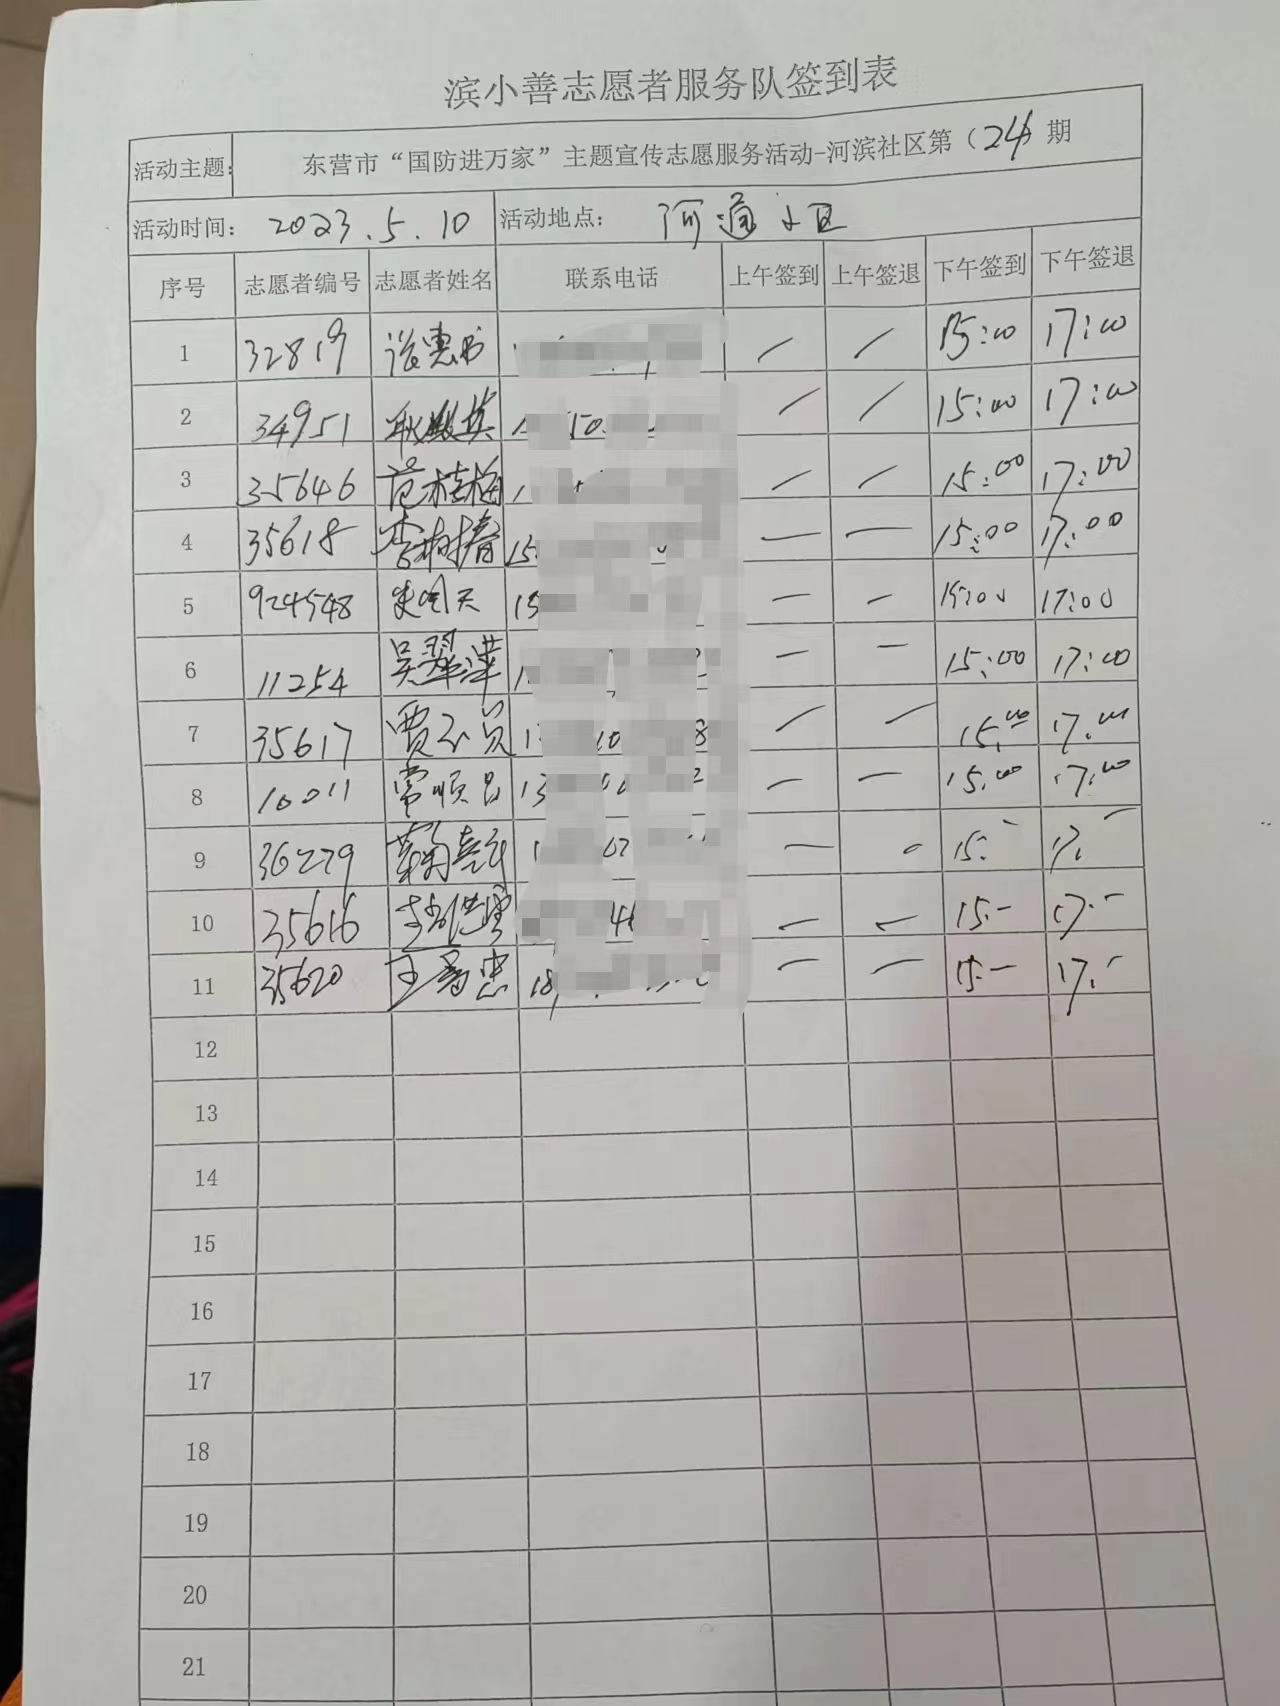 滨小善志愿者服务队签到表
活动主题: 东营市“国防进万家”主题宣传志愿服务活动-河滨社区第（24）期
活动时间: 2023.5.10 活动地点: 河通小区
序号 志愿者编号 志愿者姓名 联系电话 上午签到 上午签退 下午签到 下午签退
1 32819 张惠书 — — 15:00 17:00
2 34951 — — 15:00 17:00
3 35646 范桂梅 — — 15:00 17:00
4 35618 李树春 15 — — 15:00 17:00
5 924548 15 — — 15:00 17:00
6 11254 吴翠萍 — — 15:00 17:00
7 35617 贾不员 8 — — 15:00 17:00
8 10011 常顺昌 13 — — 15:00 17:00
9 36279 — — 15:- 17:-
10 35616 — — 15:- 17:-
11 35620 18 — — 15:- 17:-
12
13
14
15
16
17
18
19
20
21